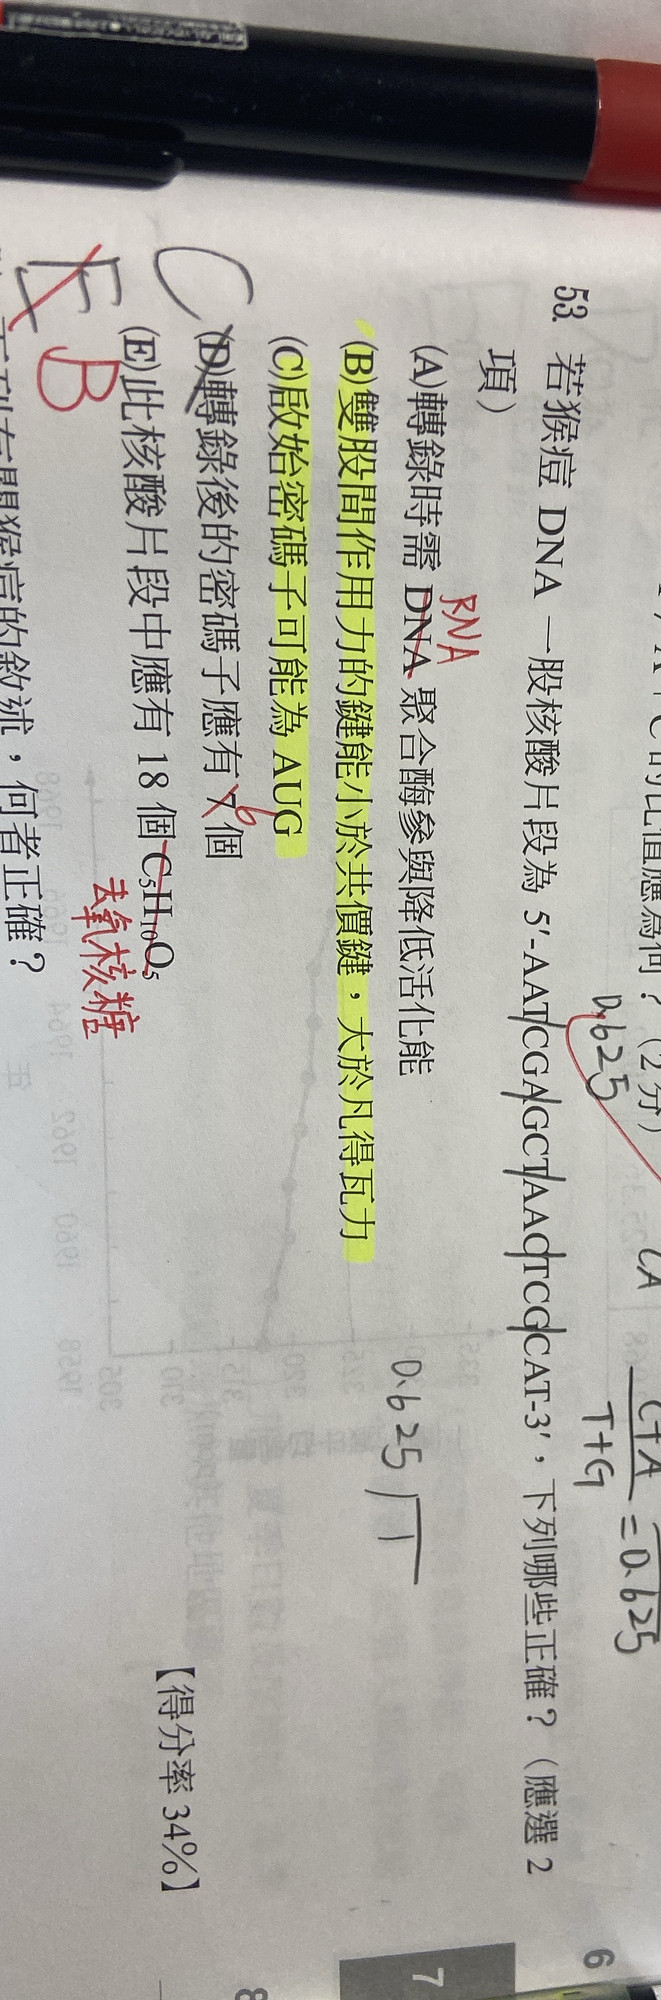 A+C 的比值應為何？（2分）
0.625
CA
C+A
T+G
=0.625
53. 若猴痘 DNA 一股核酸片段為 5′-AATCGAGCTAACTCGCAT-3′，下列哪些正確？（應選 2
項）
RNA
(A)轉錄時需 DNA 聚合酶參與降低活化能
0.625
(B)雙股間作用力的鍵能小於共價鍵，大於凡得瓦力
(C)啟始密碼子可能為 AUG
C
(D)轉錄後的密碼子應有 7 個
6
(E)此核酸片段中應有 18 個 C5H10O5
去氧核糖
【得分率 34%】
E B
下列有關猴痘的敘述，何者正確？
6
7
8